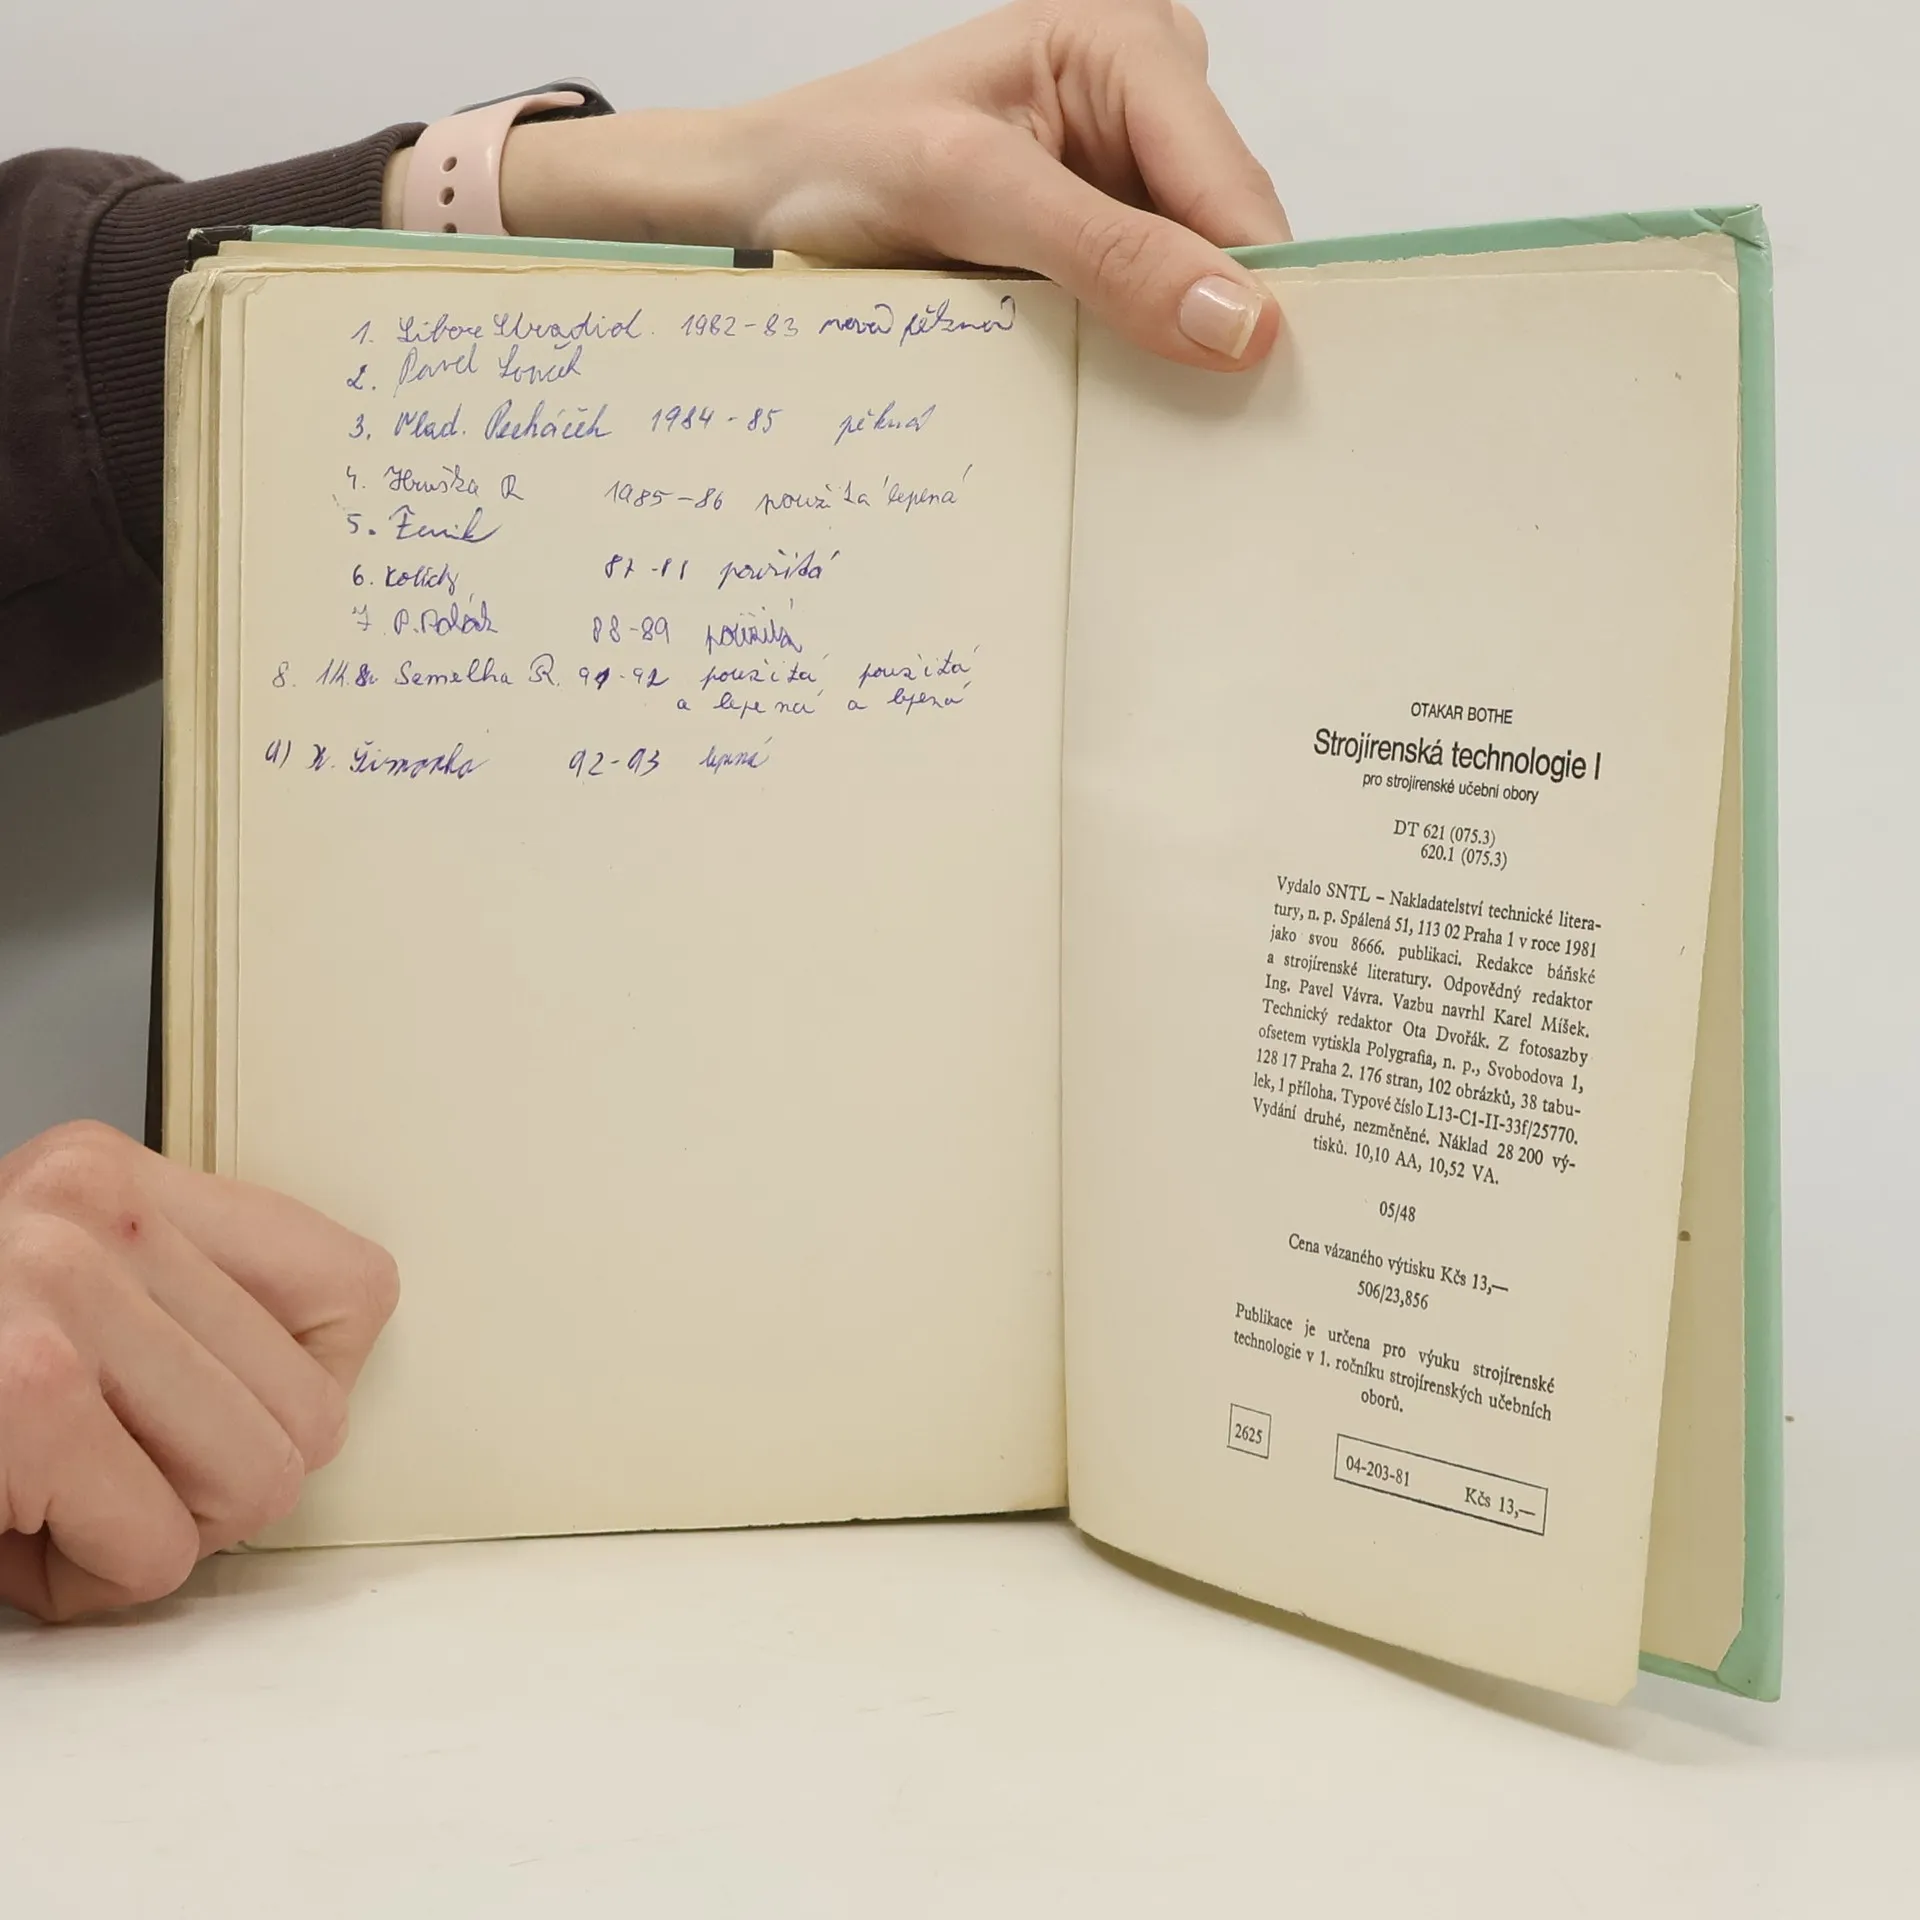 1. Libor 1982-83 nová pěkná
2. Pavel
3. Vlad. Pecháček 1984-85 pěkná
4. Hruška R 1985-86 použitá lepená
5. Ženik
6. 87- použitá
7 P. Polák 88-89 použitá
8. Semelka R. 91-92 použitá použitá
a lepená a lepená
9) Šimonka 92-93 lepená
OTAKAR BOTHE
Strojírenská technologie I
pro strojírenské učební obory
DT 621 (075.3)
620.1 (075.3)
Vydalo SNTL – Nakladatelství technické litera-
tury, n. p. Spálená 51, 113 02 Praha 1 v roce 1981
jako svou 8666. publikaci. Redakce báňské
a strojírenské literatury. Odpovědný redaktor
Ing. Pavel Vávra. Vazbu navrhl Karel Míšek.
Technický redaktor Ota Dvořák. Z fotosazby
ofsetem vytiskla Polygrafia, n. p., Svobodova 1,
128 17 Praha 2. 176 stran, 102 obrázků, 38 tabu-
lek, 1 příloha. Typové číslo L13-C1-II-33f/25770.
Vydání druhé, nezměněné. Náklad 28 200 vý-
tisků. 10,10 AA, 10,52 VA.
05/48
Cena vázaného výtisku Kčs 13,—
506/23,856
Publikace je určena pro výuku strojírenské
technologie v 1. ročníku strojírenských učebních
oborů.
2625
04-203-81 Kčs 13,—